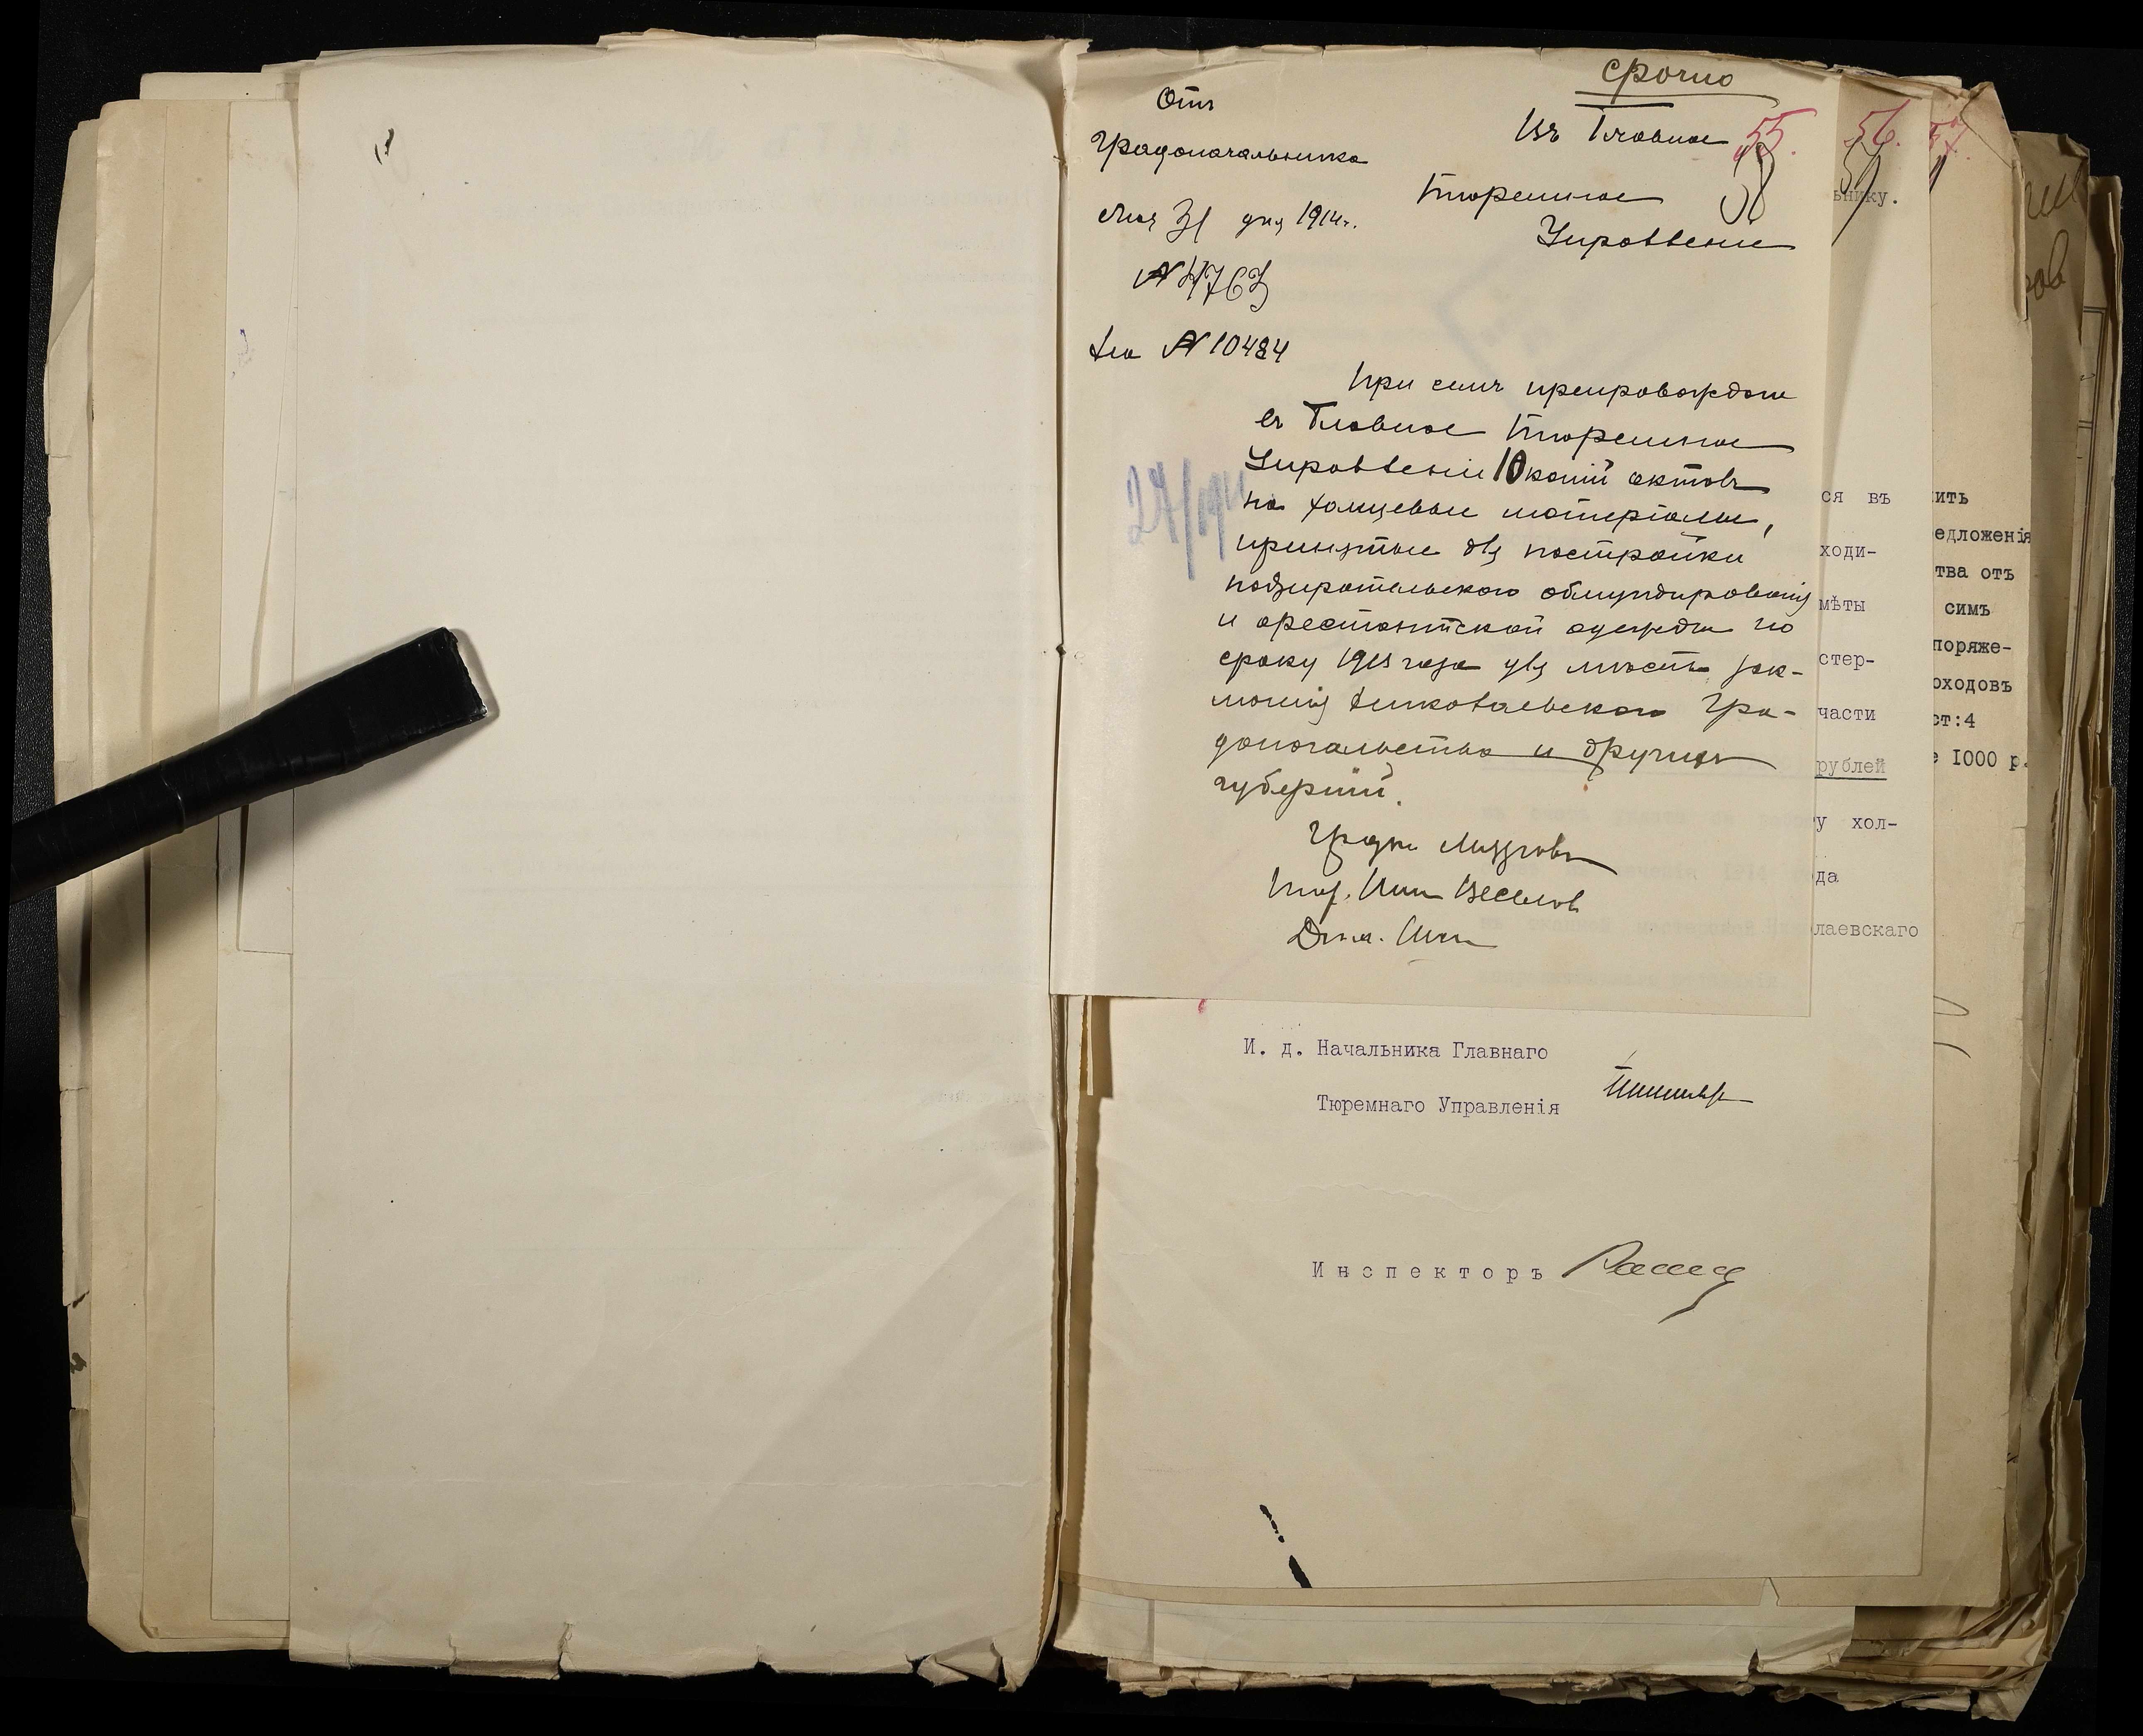 срочно
Отъ
Градоначальника
Мая 31 дня 1914г.
№ 4763
На № 10484
Въ Главное
Тюремное
Управленіе
55.
58
56.
57.
ьнику.
При семъ препровождаю
въ Главное Тюремное
Управленіе 10 копій актовъ
на холщевые матеріалы,
принятые для постройки
надзирательского обмундированія
и арестантской одежды по
сроку 1915 года для мѣстъ зак-
люченія Николаевского Гра-
доначальства и другихъ
губерній.
27/
Градон.
Тюр. Инсп.
Дѣл.
ся въ
ходи-
мѣты
стер-
части
рублей
у хол-
да
лаевскаго
ить
едложенія
тва отъ
симъ
поряже-
оходовъ
ст:4
е 1000 р.
И. д. Начальника Главнаго
Тюремнаго Управленія
Инспекторъ